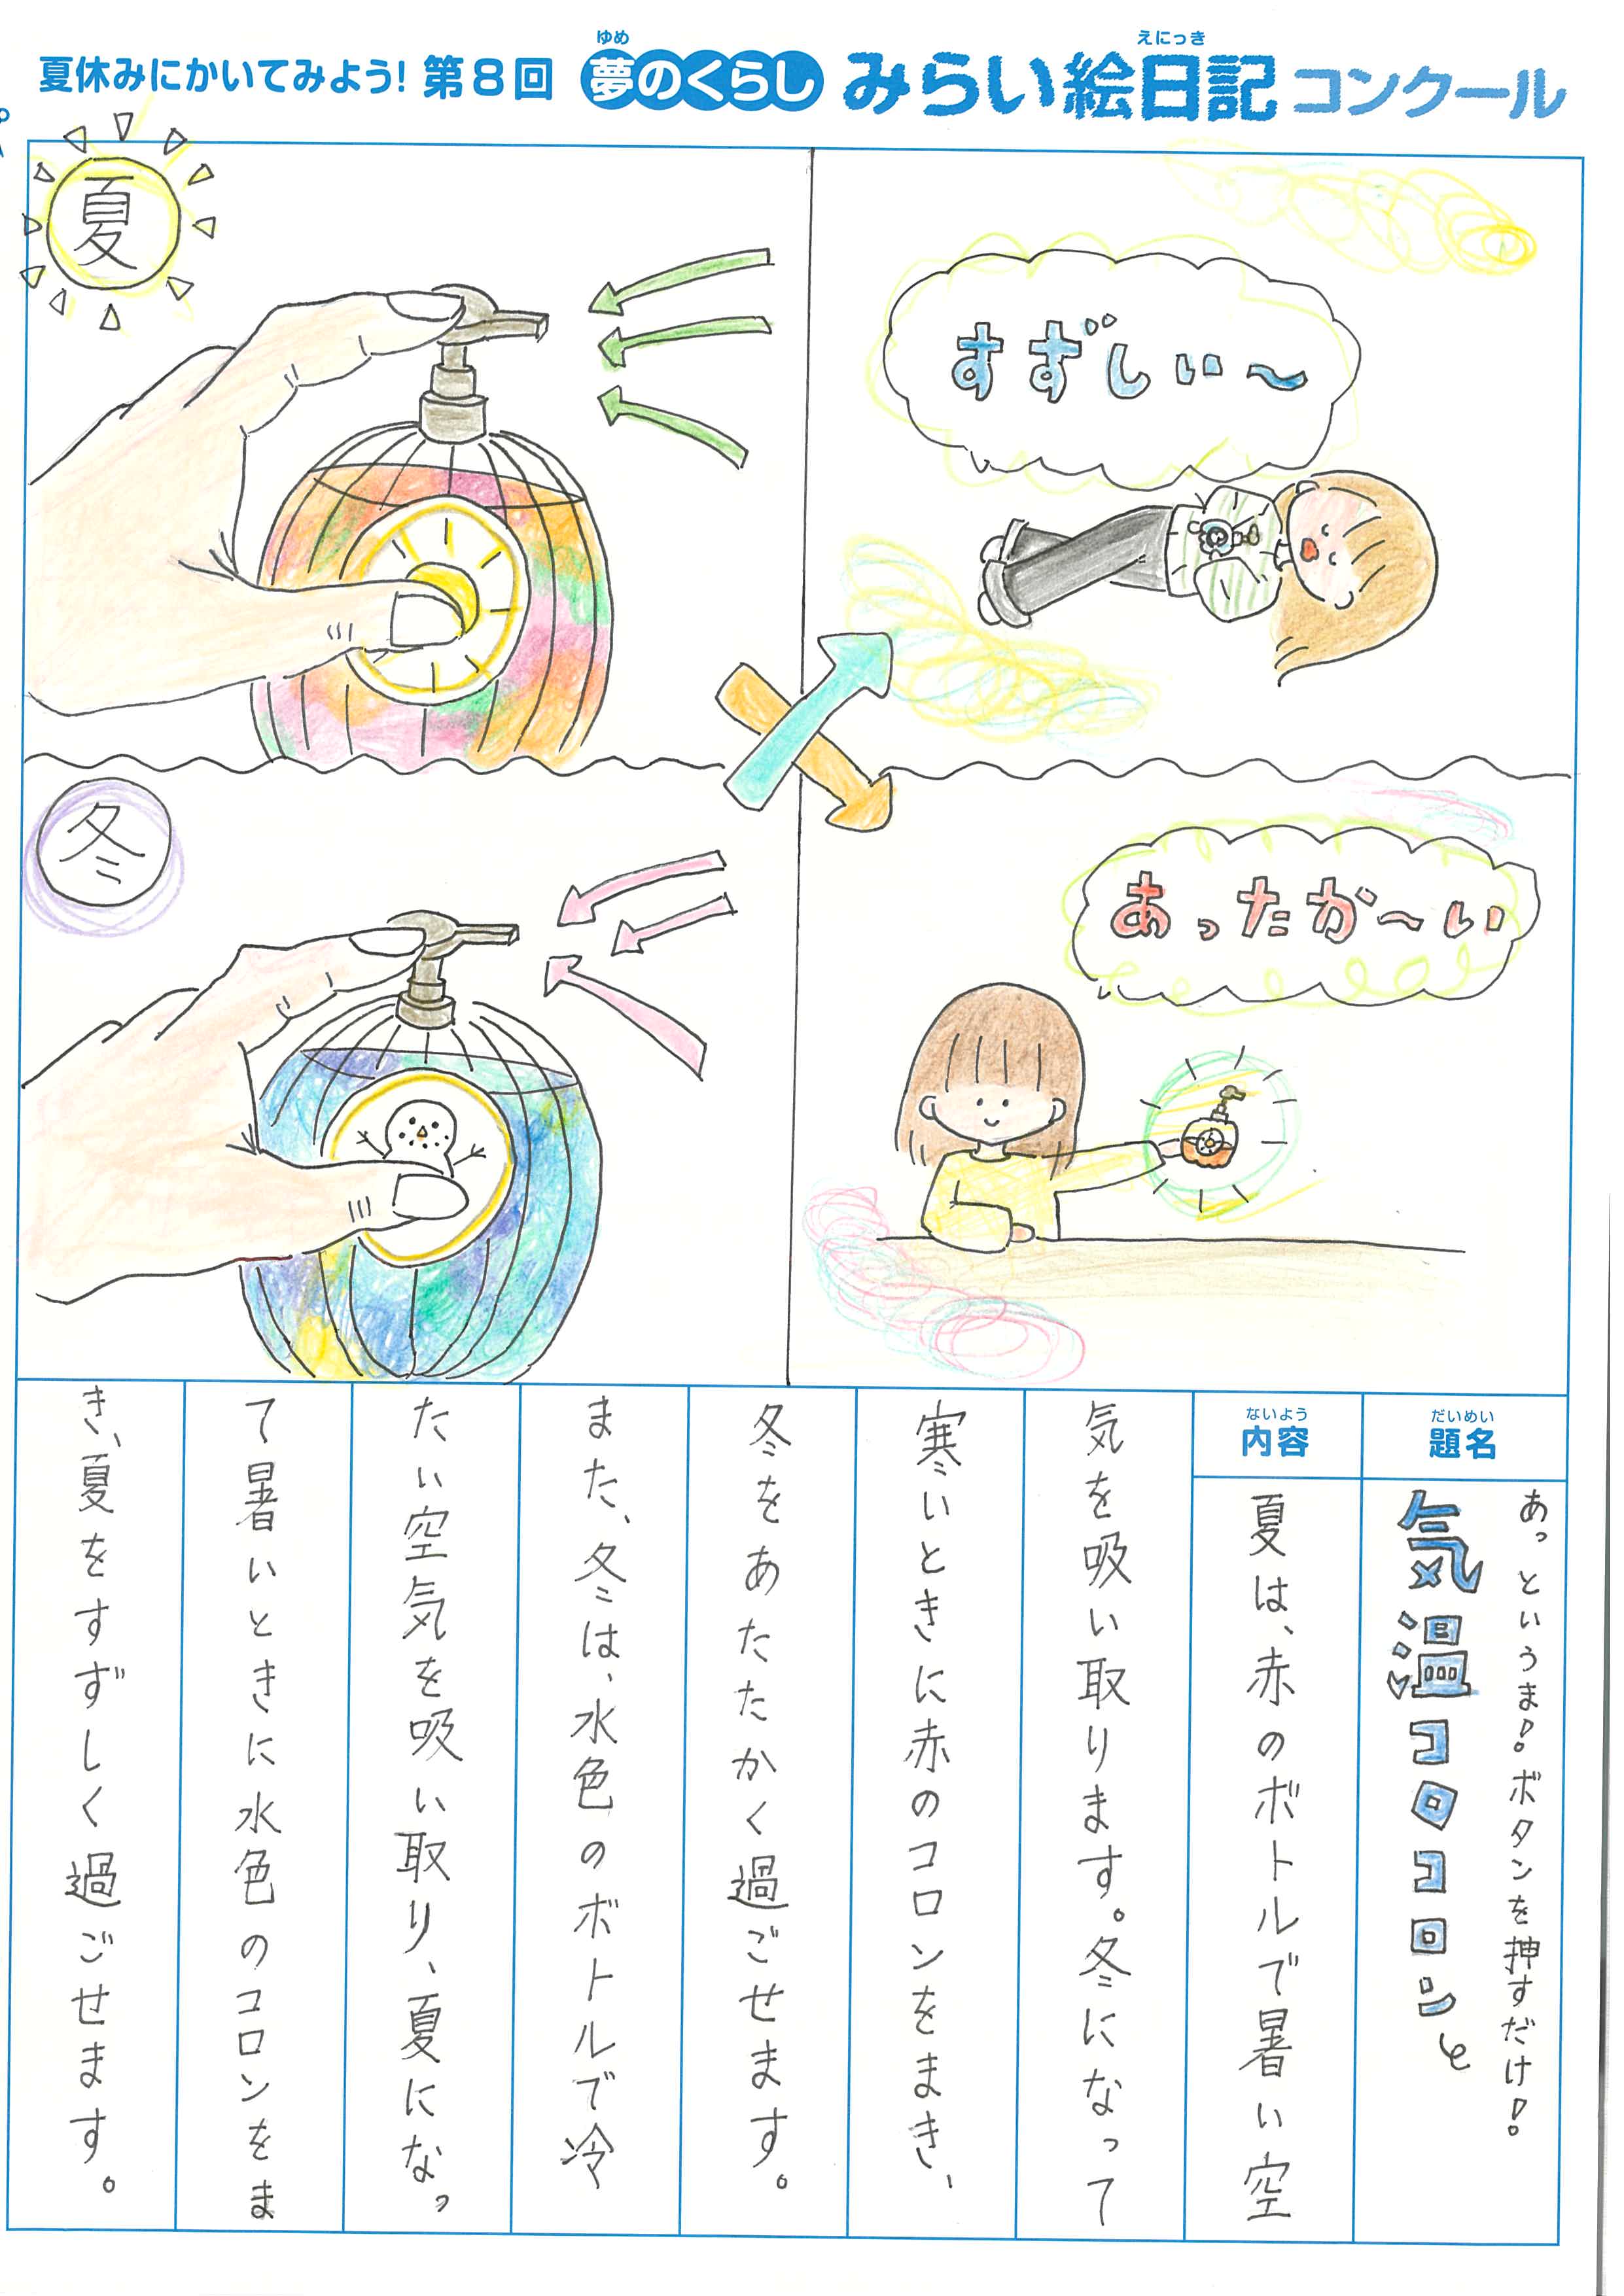 夏休みにかいてみよう! 第8回 夢のくらし みらい絵日記 コンクール
ゆめ
えにっき
夏
すずしい〜
冬
あったか〜い
だいめい
題名
あっというま!ボタンを押すだけ!
気温コロコロン
ないよう
内容
夏は、赤のボトルで暑い空
気を吸い取ります。冬になって
寒いときに赤のコロンをまき、
冬をあたたかく過ごせます。
また、冬は、水色のボトルで冷
たい空気を吸い取り、夏になっ
て暑いときに水色のコロンをま
き、夏をすずしく過ごせます。